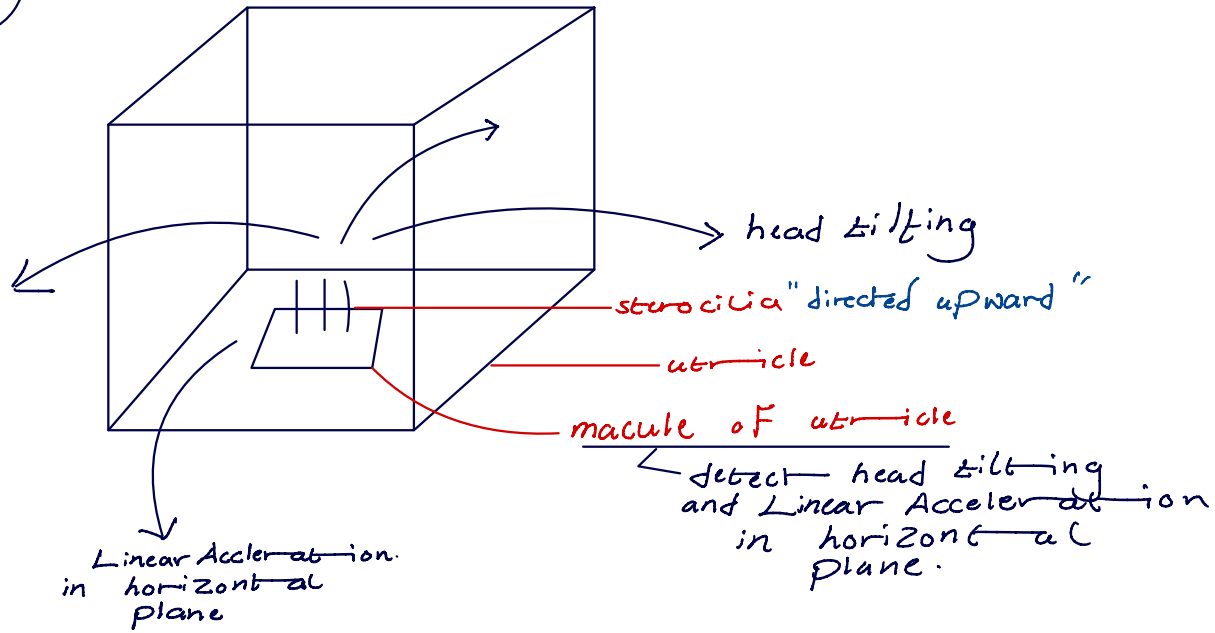 head tilting
sterocilia "directed upward"
utricle
macule of utricle
detect head tilting
and Linear Acceleration
in horizontal
plane.
Linear Accleration.
in horizontal
plane